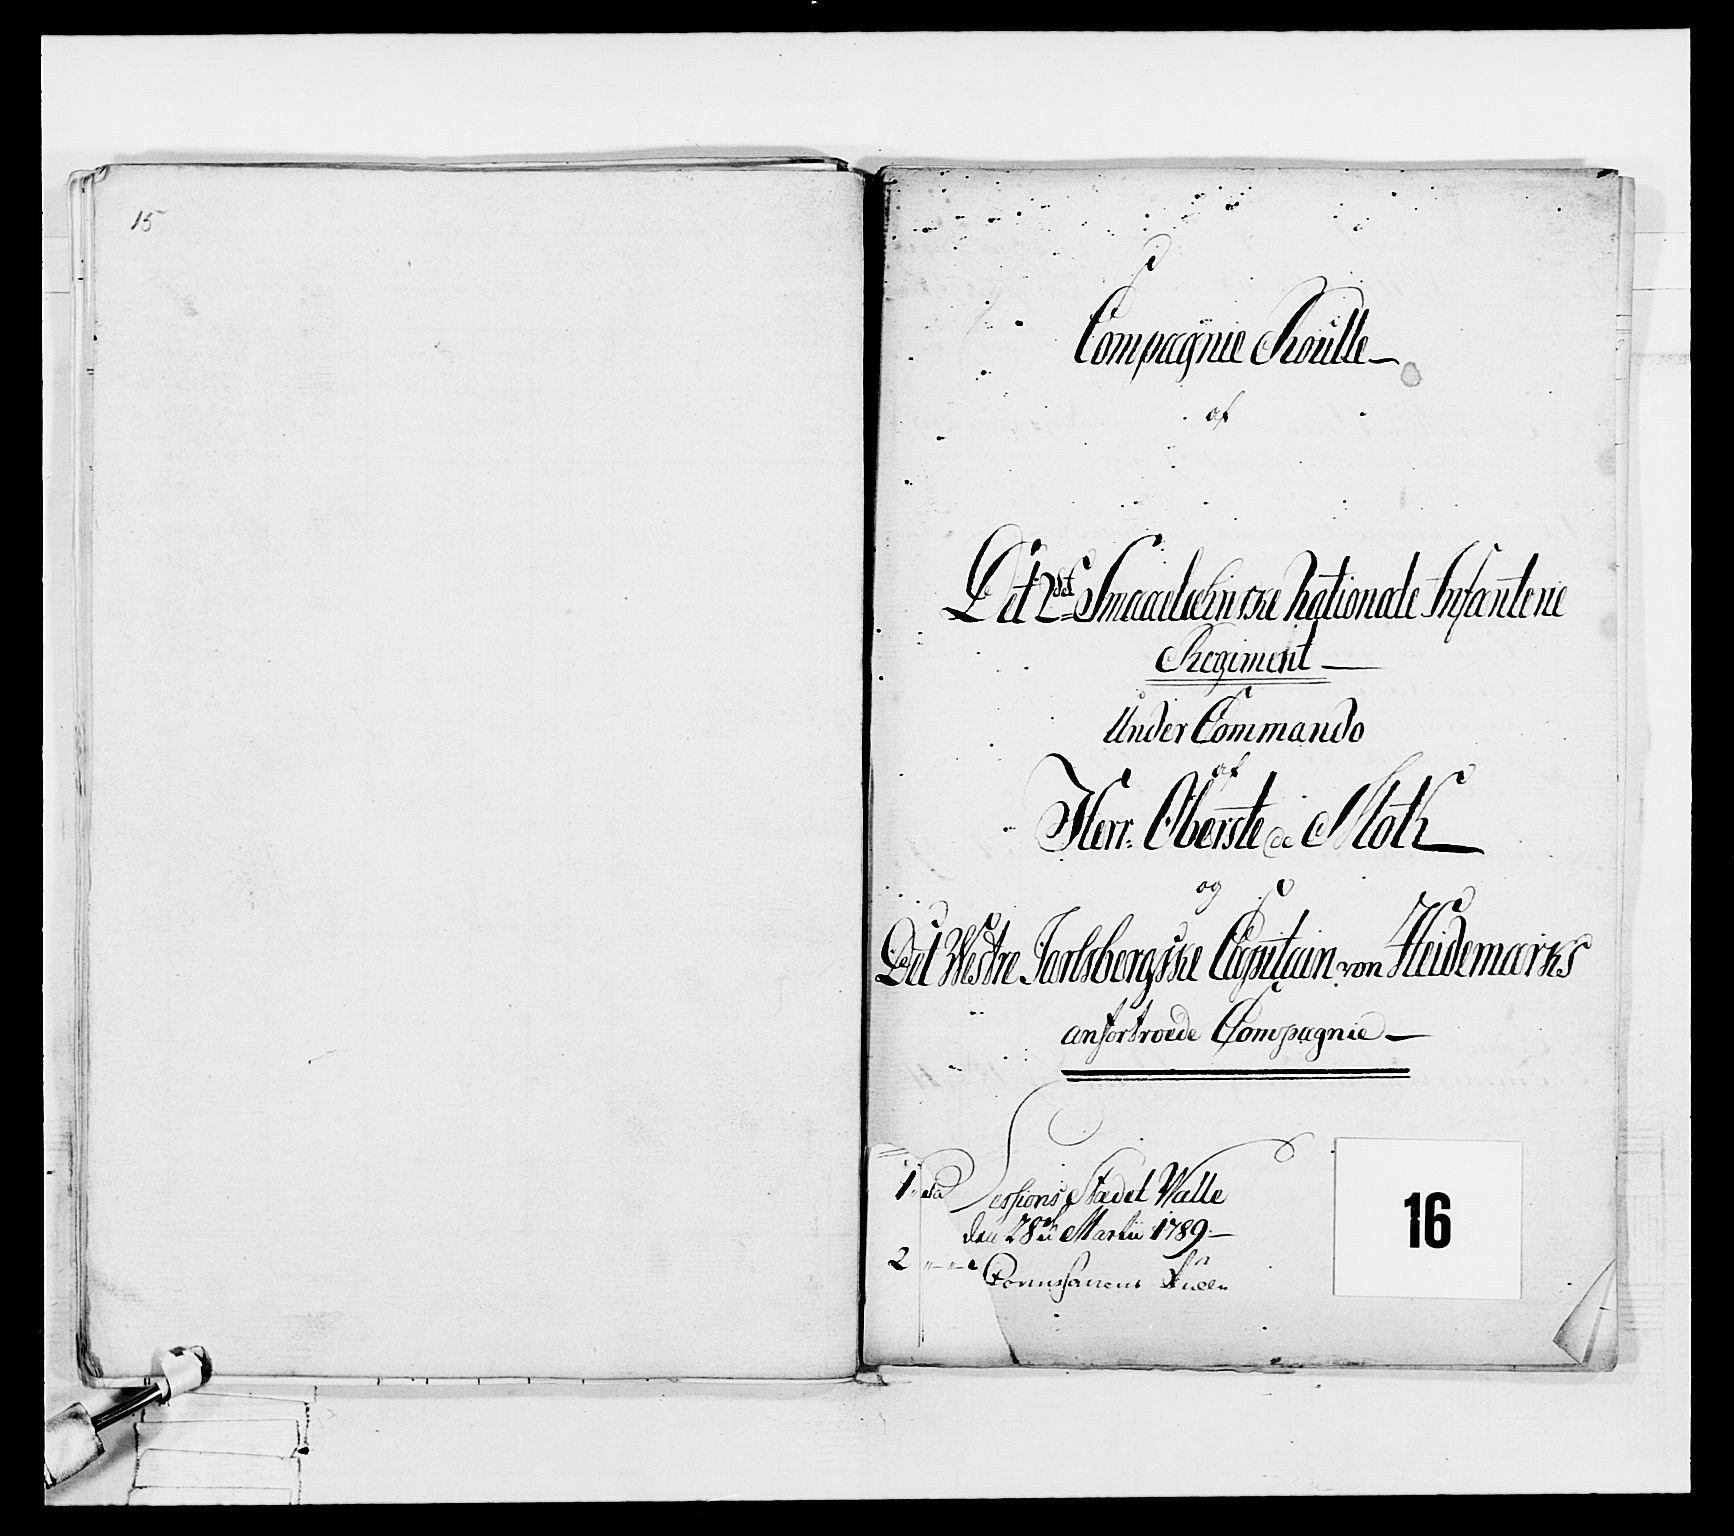 15
Compagnie Roulle
af
Det 2det Smaalehnske Nationale Infanterie
Regiment
Under Commando
af
Herr: Oberste de Moth
og
Det Westre Jarlsbergske Capitain von Heidemarks
anfortroede Compagnie
1 Sessions Stædet Walle
den 28de Martii 1789
2
16